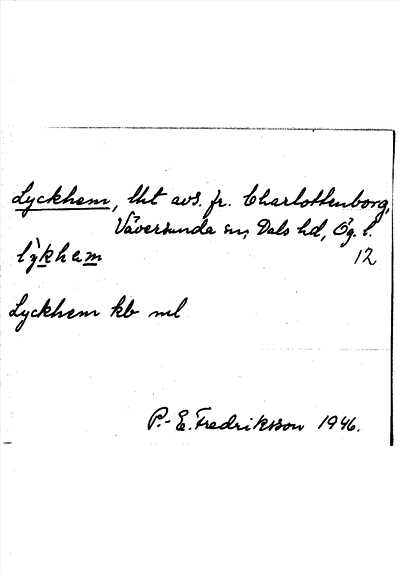 Lyckhem, lht avs. fr. Charlottenborg,
Väversunda sn, Dals hd, Ög. l.
lỳkhem 12
Lyckhem kb ml
P.-E. Fredriksson 1946.